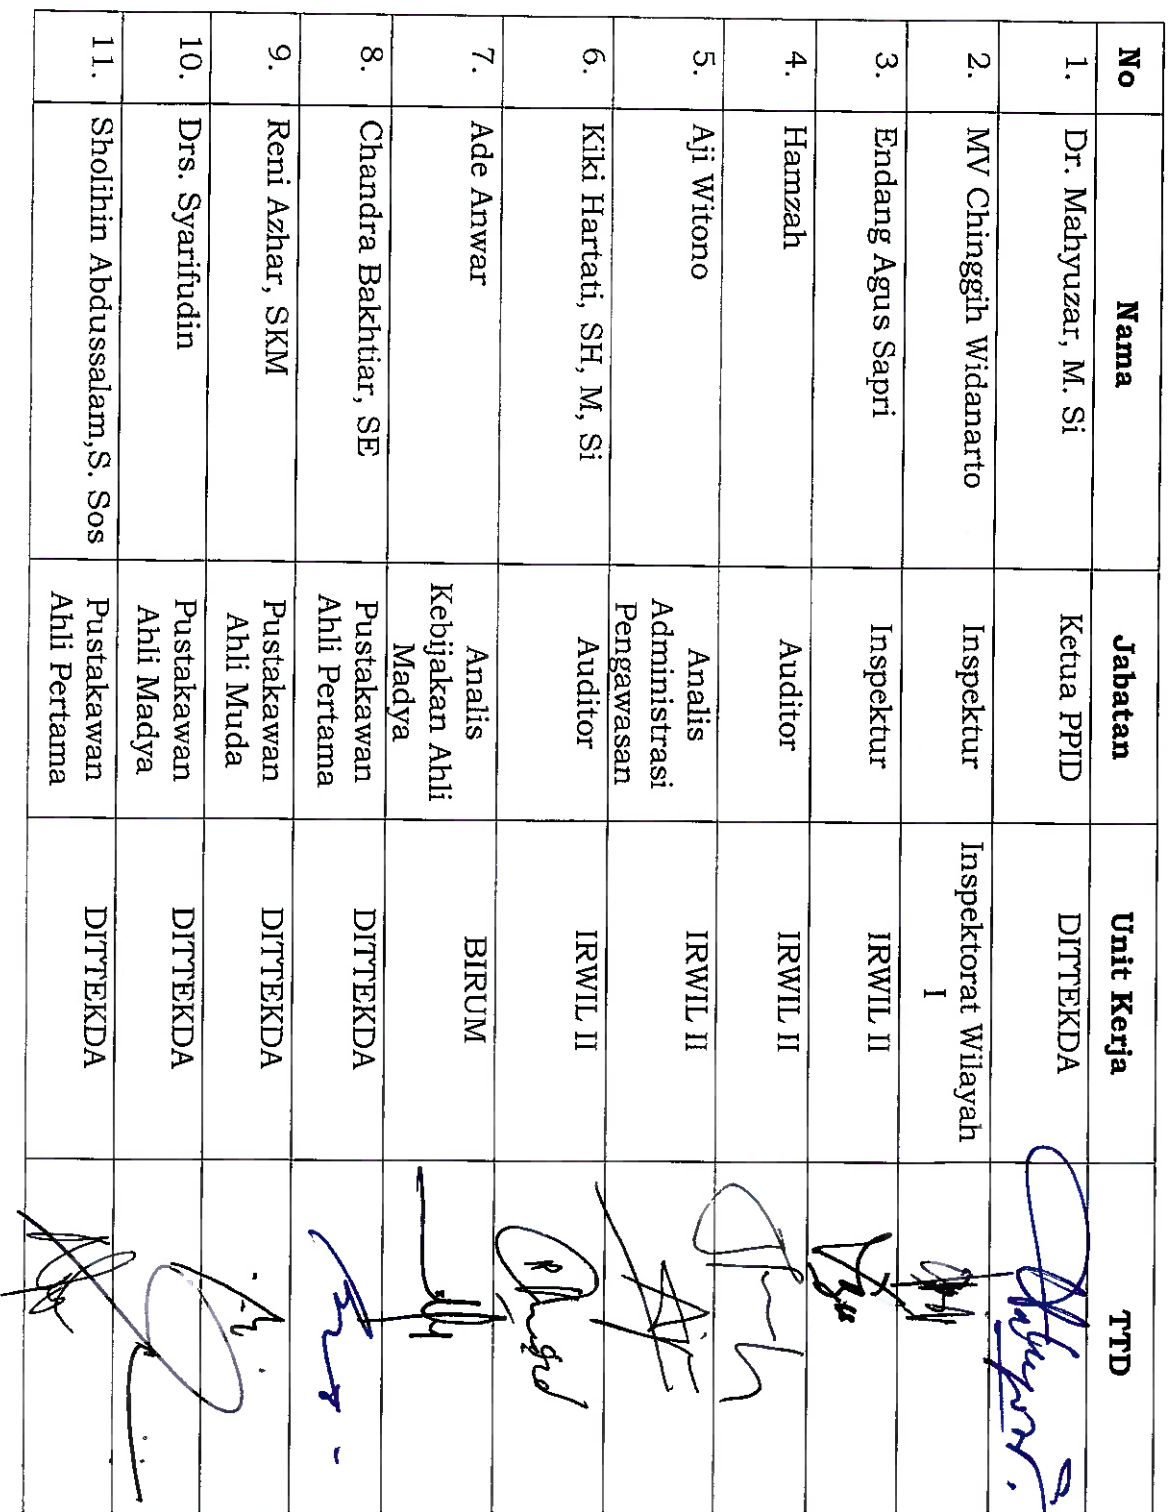 No Nama Jabatan Unit Kerja TTD
1. Dr. Mahyuzar, M. Si Ketua PPID DITTEKDA
2. MV Chinggih Widanarto Inspektur Inspektorat Wilayah
I
3. Endang Agus Sapri Inspektur IRWIL II
4. Hamzah Auditor IRWIL II
5. Aji Witono Analis IRWIL II
Administrasi
Pengawasan
6. Kiki Hartati, SH, M, Si Auditor IRWIL II
7. Ade Anwar Analis BIRUM
Kebijakan Ahli
Madya
8. Chandra Bakhtiar, SE Pustakawan DITTEKDA
Ahli Pertama
9. Reni Azhar, SKM Pustakawan DITTEKDA
Ahli Muda
10. Drs. Syarifudin Pustakawan DITTEKDA
Ahli Madya
11. Sholihin Abdussalam,S. Sos Pustakawan DITTEKDA
Ahli Pertama